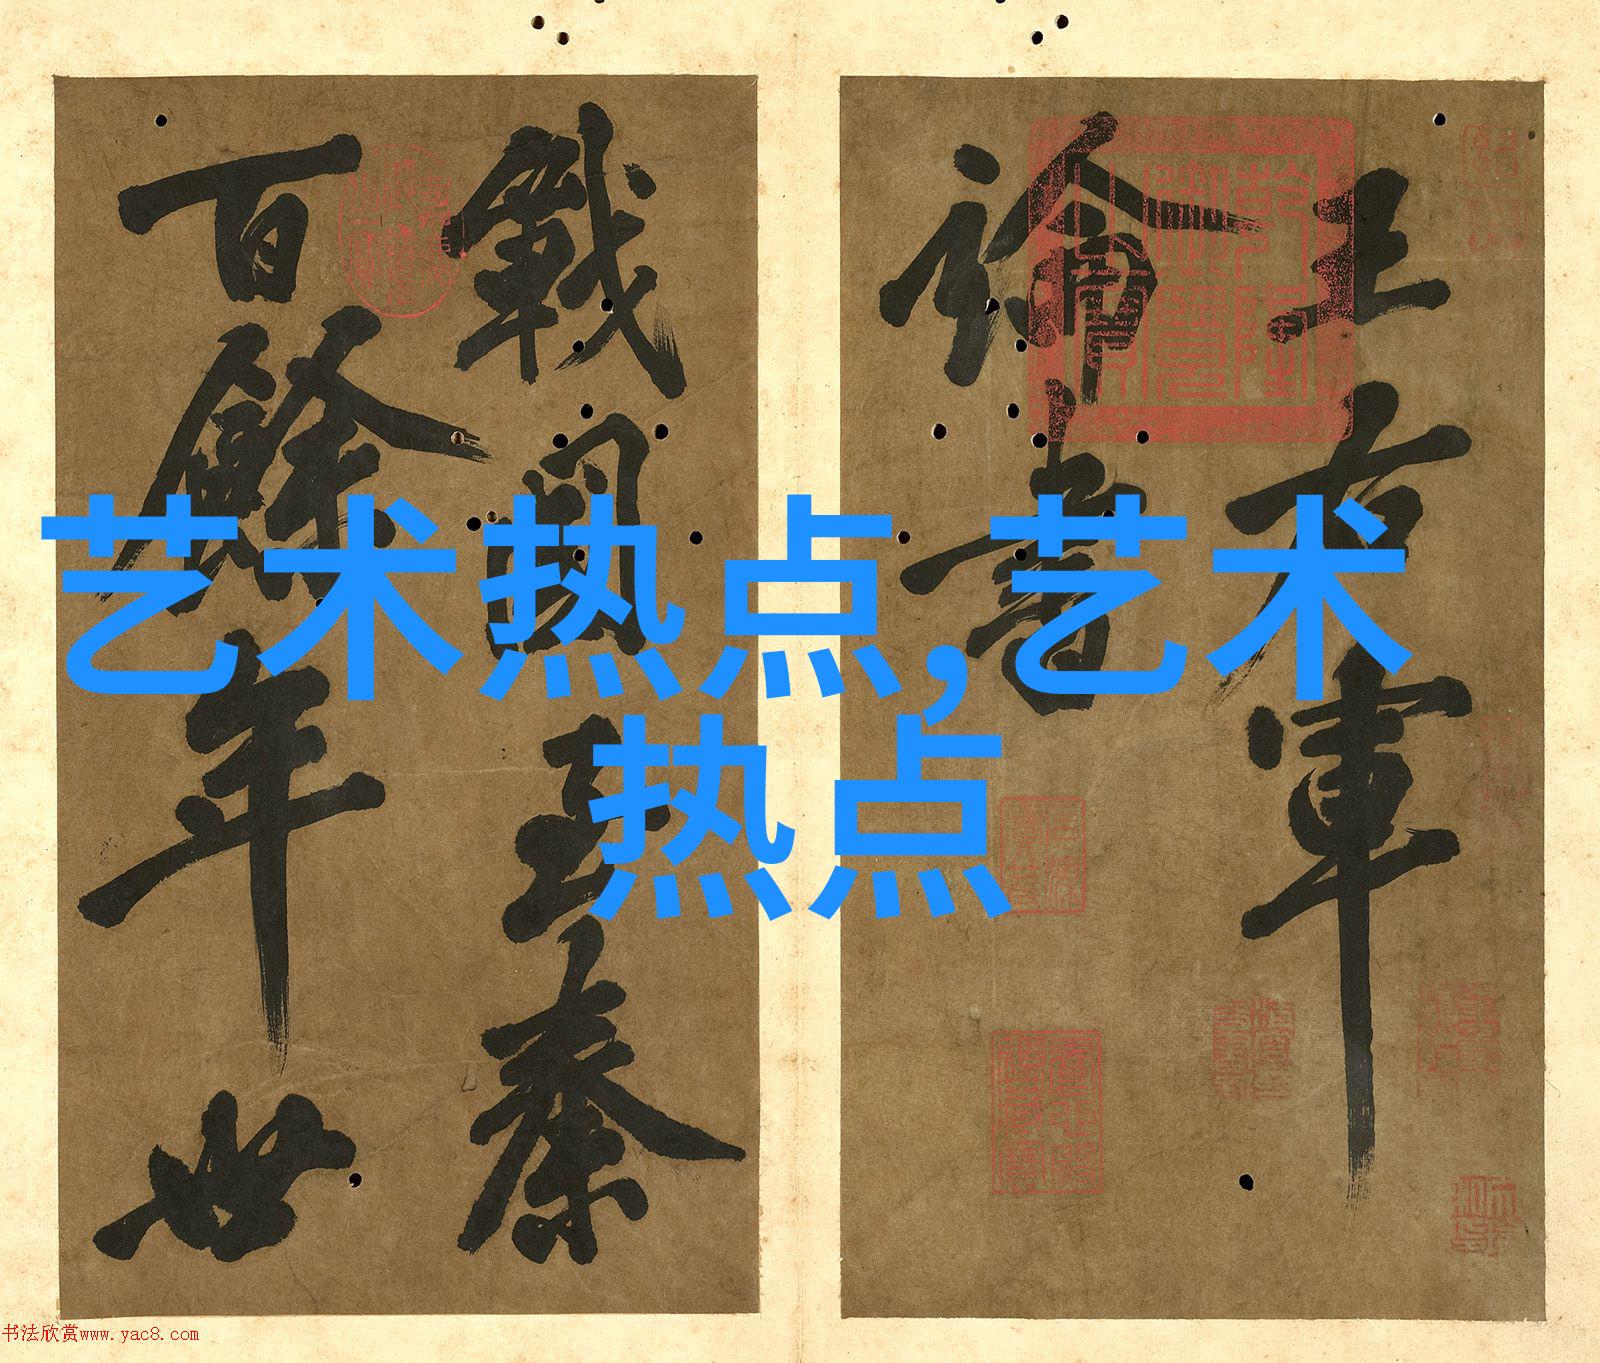 王右軍
論書
戰國至秦
百餘年世
乾隆御覽之寶
艺术热点,艺术
热点
书法欣赏www.yac8.com